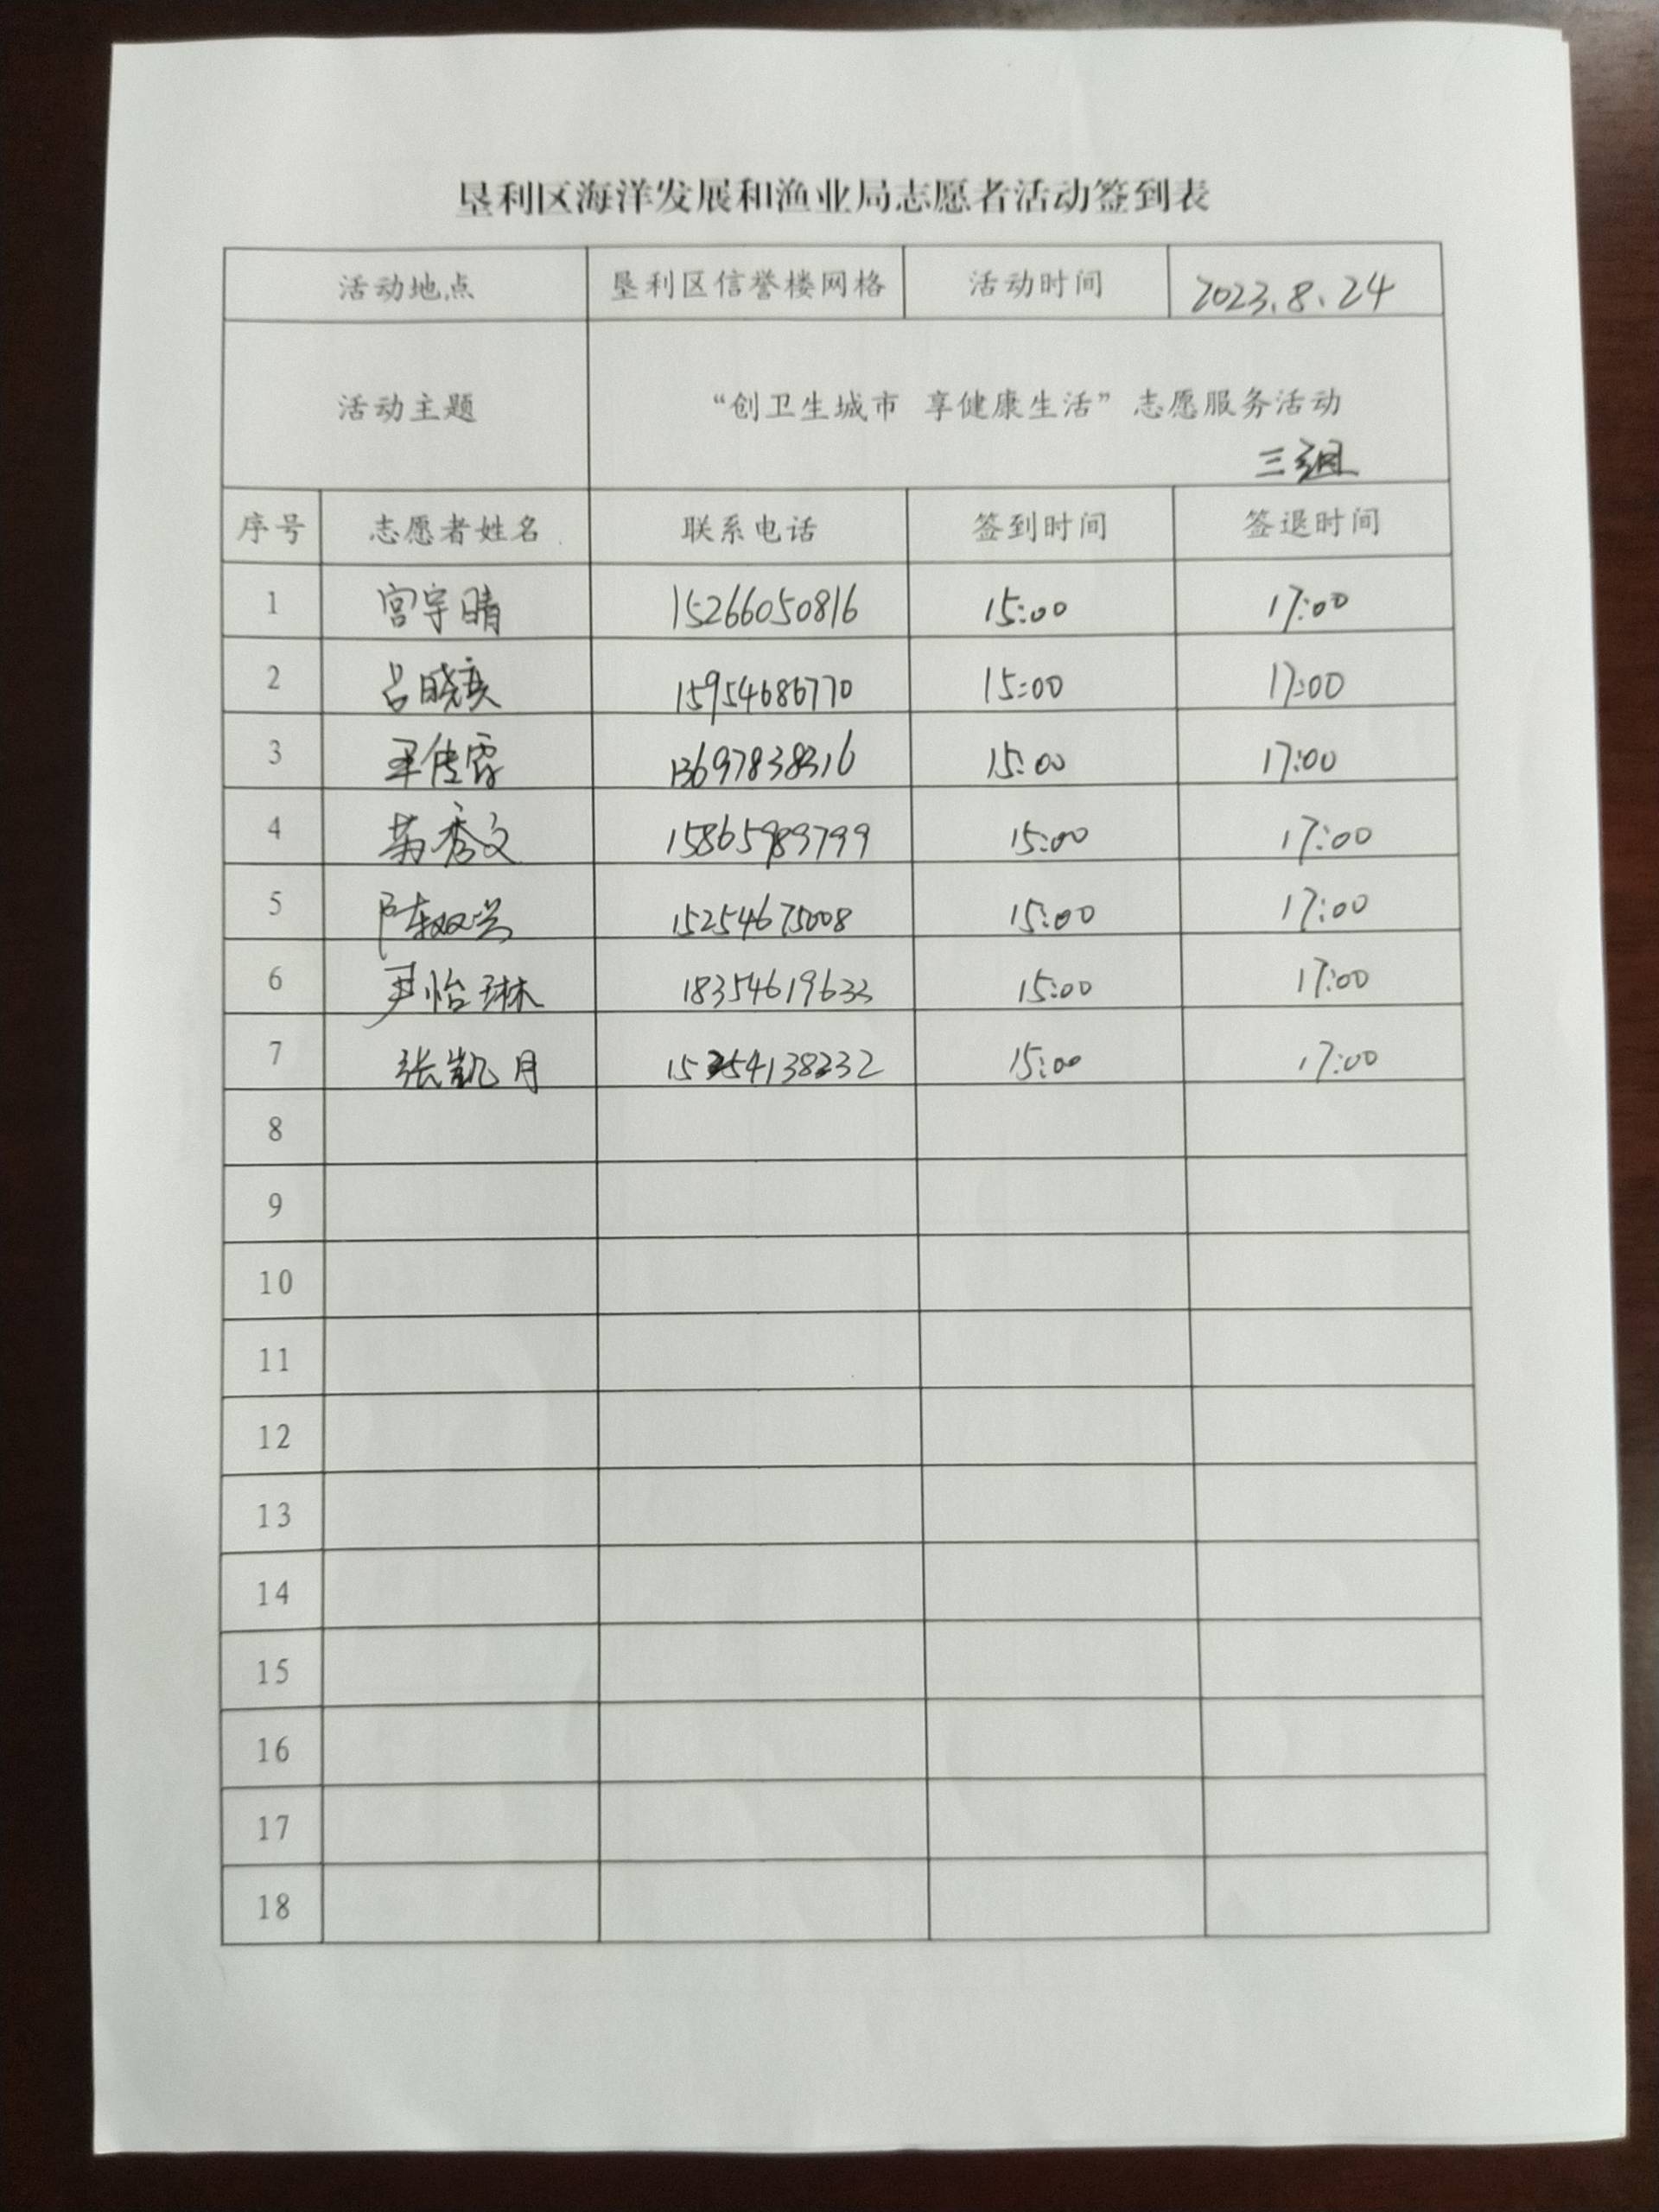 垦利区海洋发展和渔业局志愿者活动签到表
活动地点 垦利区信誉楼网格 活动时间 2023.8.24
活动主题 “创卫生城市 享健康生活”志愿服务活动
三组
序号 志愿者姓名 联系电话 签到时间 签退时间
1 宫宇晴 15266050816 15:00 17:00
2 吕晓亥 15954686770 15:00 17:00
3 13697838316 15:00 17:00
4 秀文 15865989799 15:00 17:00
5 陈双兴 15254675008 15:00 17:00
6 尹怡琳 18354619633 15:00 17:00
7 张凯月 15254138232 15:00 17:00
8
9
10
11
12
13
14
15
16
17
18